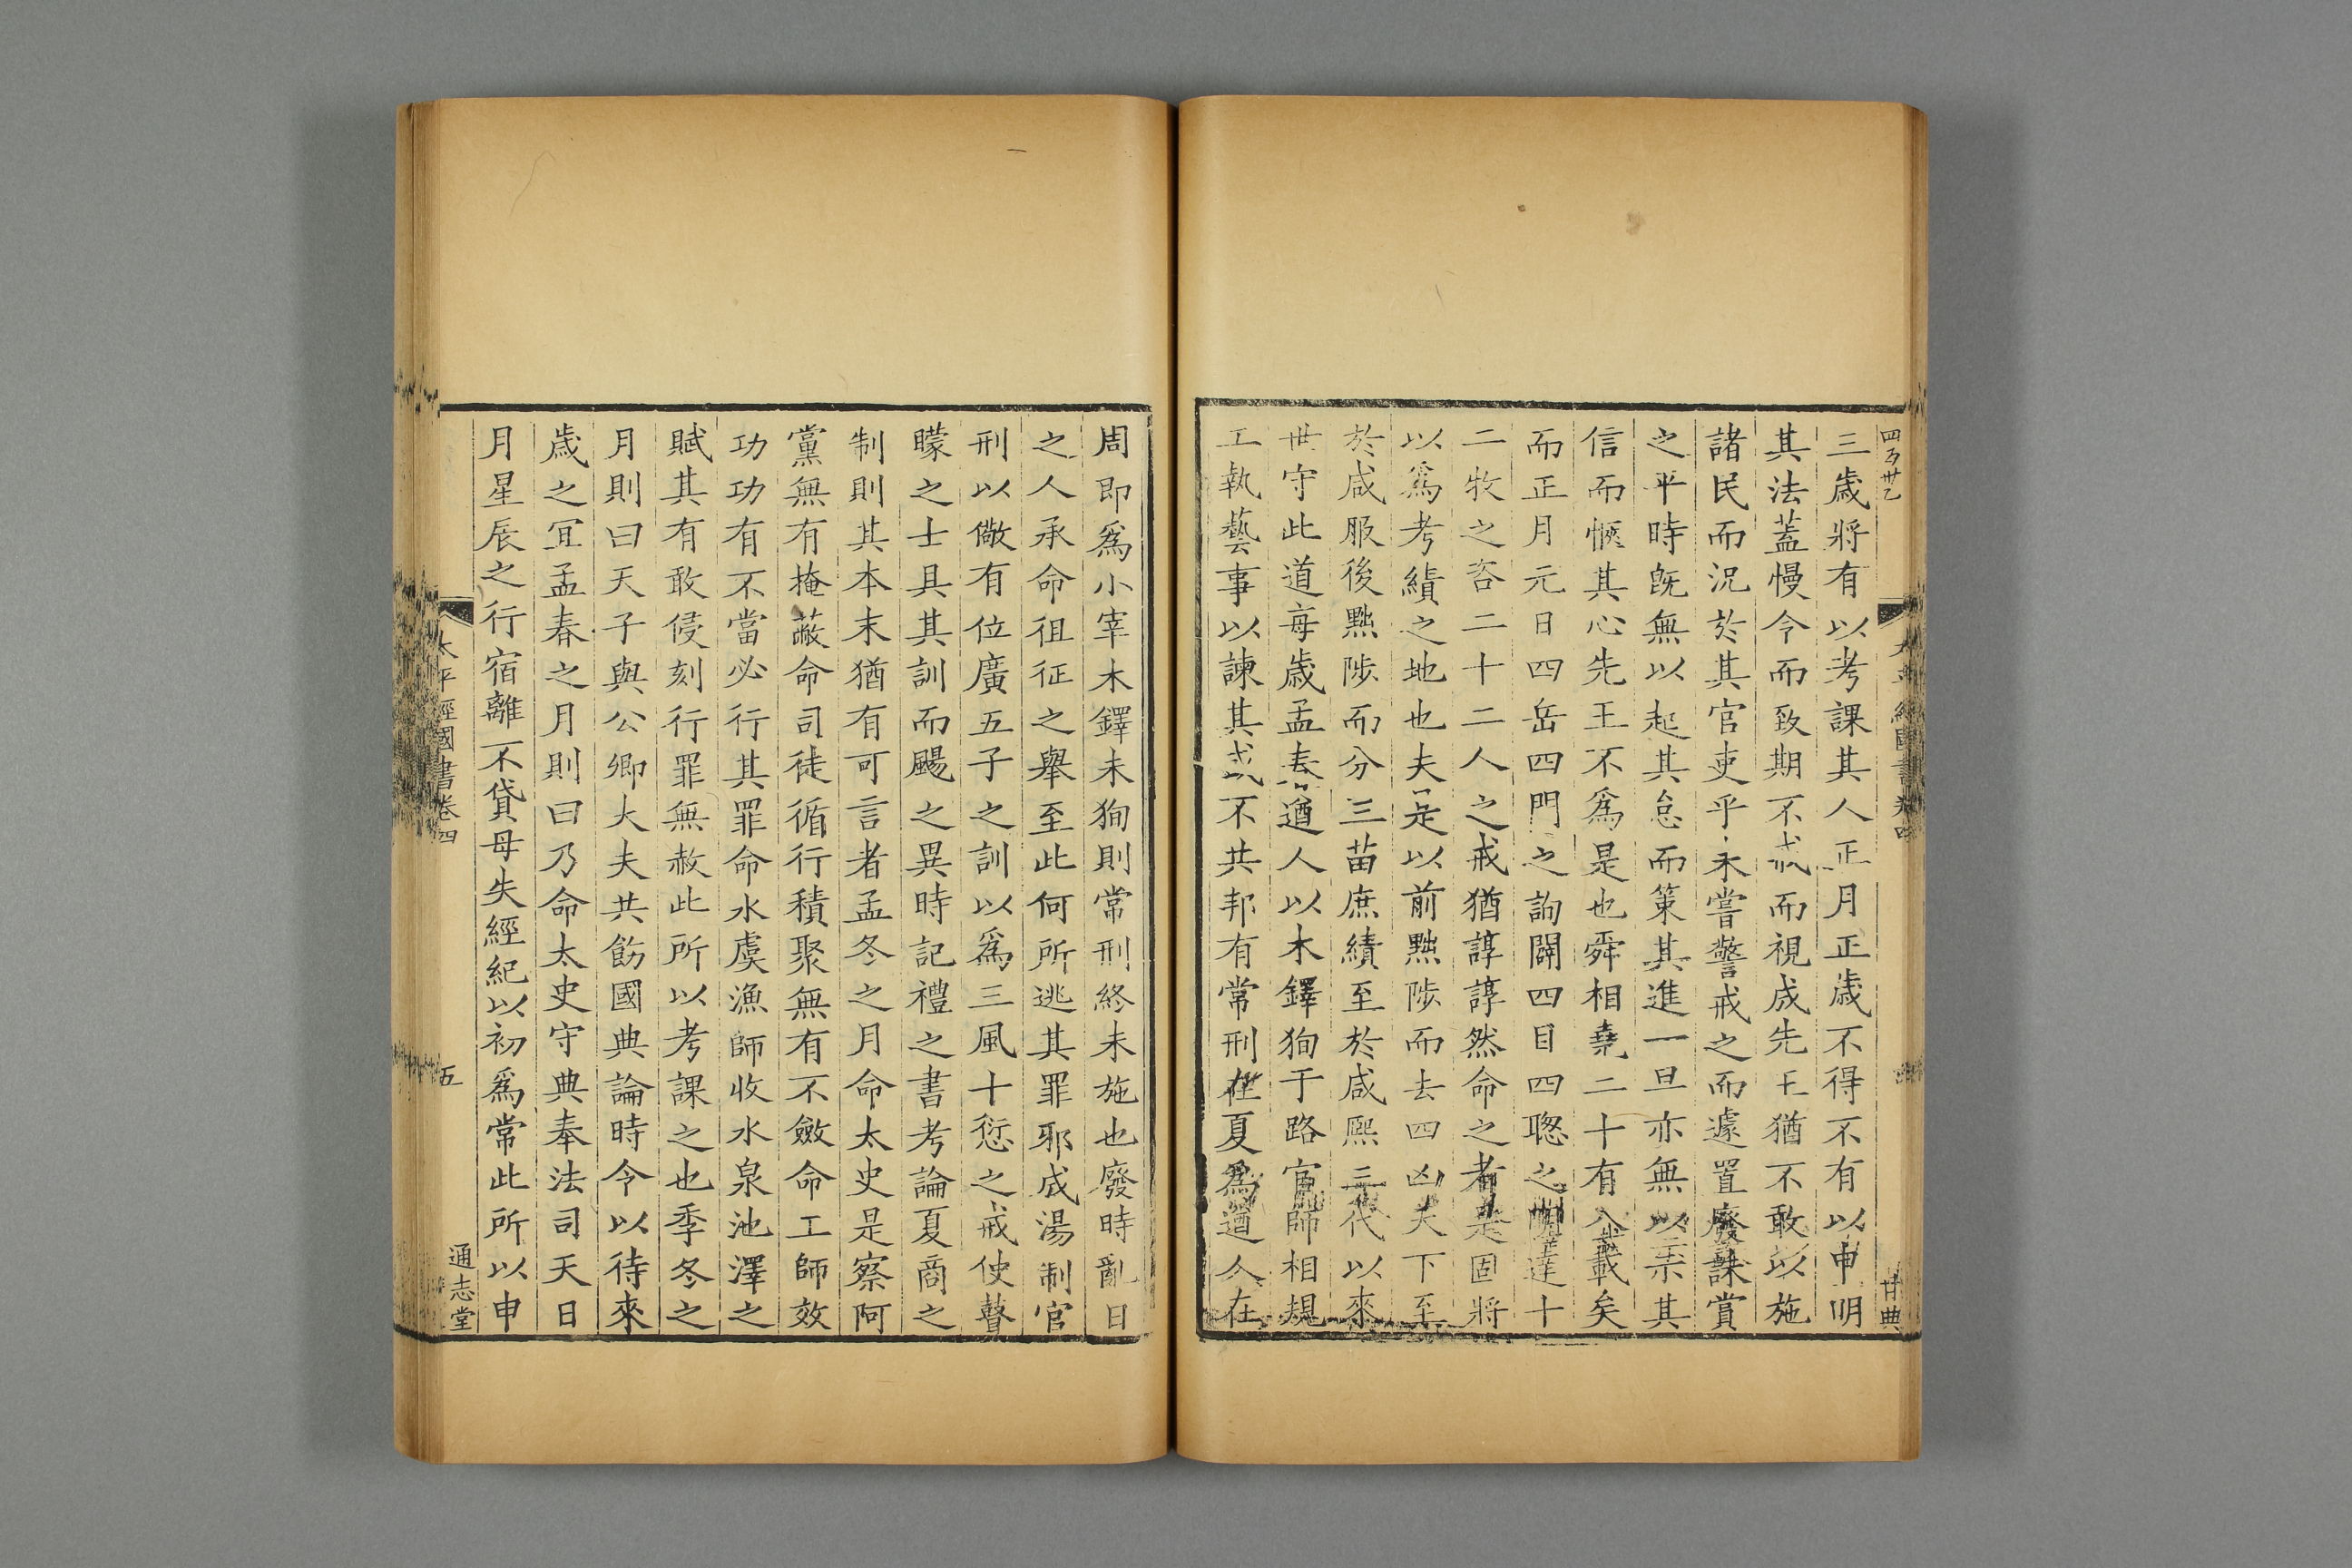 三歲將有以考課其人正月正歲不得不有以申明
其法蓋慢令而致期不戒而視成先王猶不敢以施
諸民而況於其官吏乎未嘗警戒之而遽置廢誅賞
之平時旣無以起其怠而策其進一旦亦無以示其
信而愜其心先王不爲是也舜相堯二十有八載矣
而正月元日四岳四門之詢闢四目四聰之明達十
二牧之咨二十二人之戒猶諄諄然命之者是固將
以爲考績之地也夫是以前黜陟而去四凶夫下至
於咸服後黜陟而分三苗庶績至於咸熙三代以來
世守此道每歲孟春遒人以木鐸狥于路官師相規
工執藝事以諫其或不共邦有常刑在夏爲遒人在
周即爲小宰木鐸未狥則常刑終未施也廢時亂日
之人承命徂征之舉至此何所逃其罪邪成湯制官
刑以儆有位廣五子之訓以爲三風十愆之戒使瞽
矇之士具其訓而颺之異時記禮之書考論夏商之
制則其本末猶有可言者孟冬之月命太史是察阿
黨無有掩蔽命司徒循行積聚無有不斂命工師效
功功有不當必行其罪命水虞漁師收水泉池澤之
賦其有敢侵刻行罪無赦此所以考課之也季冬之
月則曰天子與公卿大夫共飭國典論時令以待來
歲之宜孟春之月則曰乃命太史守典奉法司天日
月星辰之行宿離不貸毋失經紀以初爲常此所以申
太平經國書卷四
五
通志堂